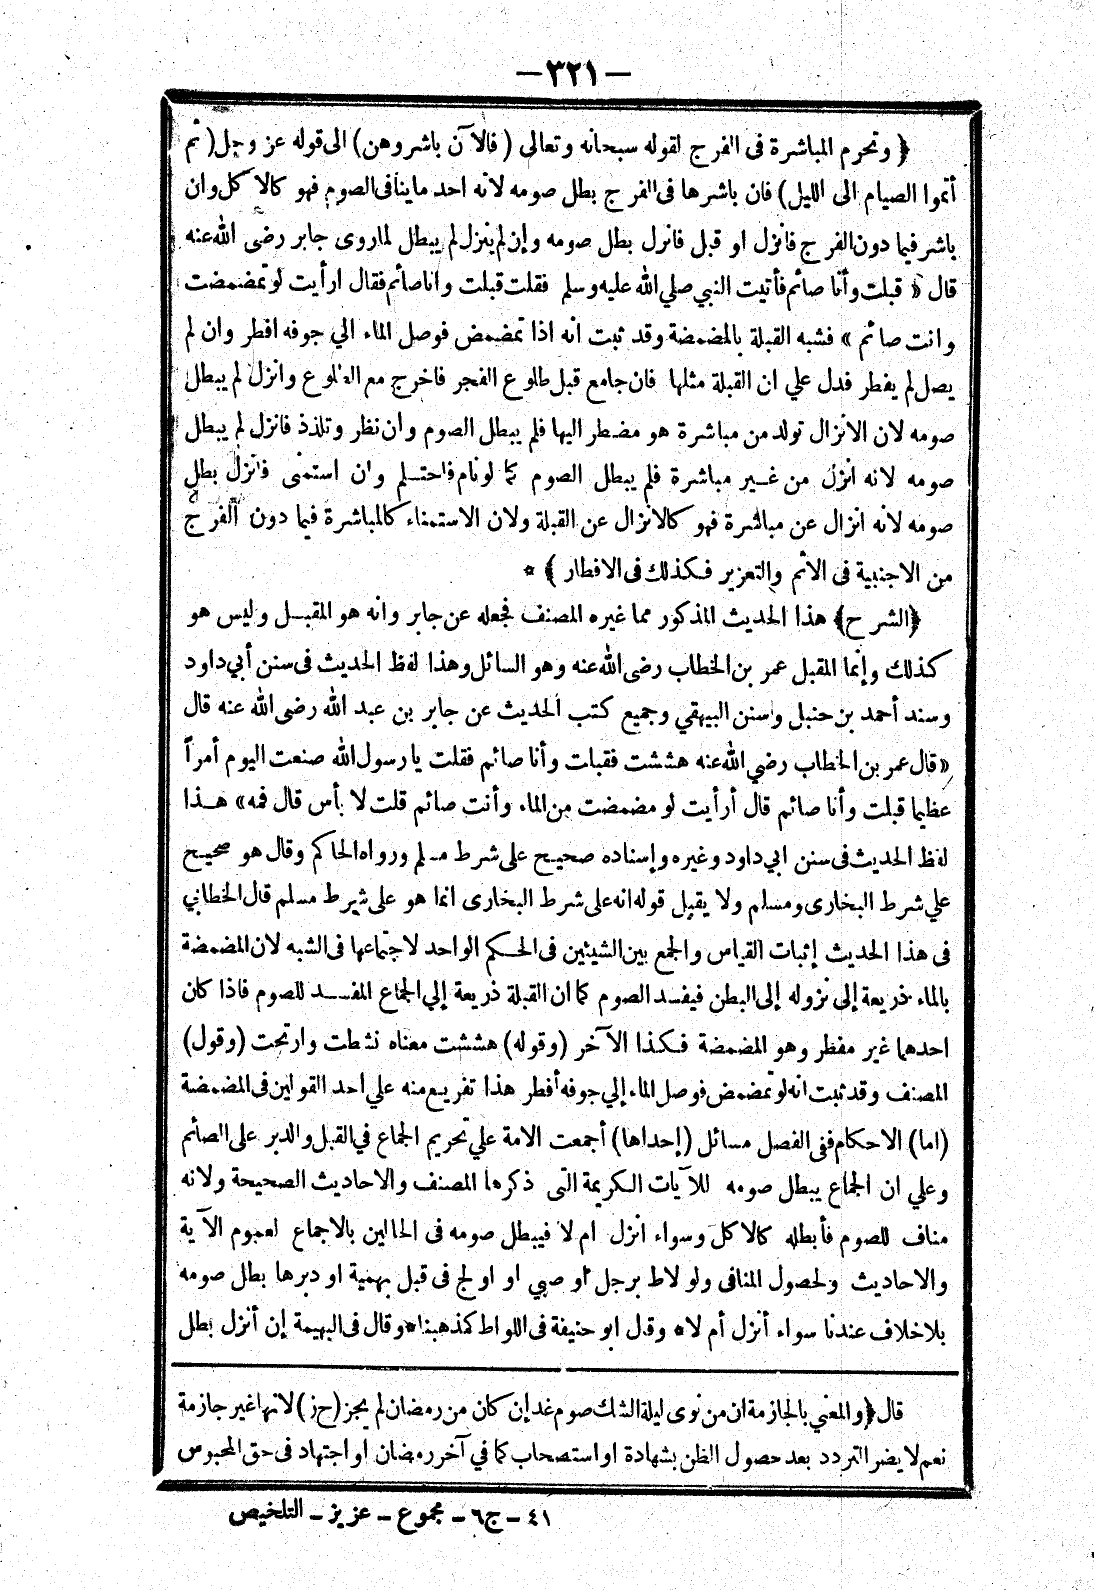 — ٣٢١ —
﴿ وتحرم المباشرة فى الفرج لقوله سبحانه وتعالى ( فالآن باشروهن ) الى قوله عز وجل ( ثم
أتموا الصيام الى الليل ) فان باشرها فى الفرج بطل صومه لانه احد ما ينافى الصوم فهو كالاكل وان
باشر فيما دون الفرج فانزل او قبل فانزل بطل صومه وإن لم ينزل لم يبطل لما روى جابر رضى الله عنه
قال « قبلت وأنا صائم فأتيت النبي صلي الله عليه وسلم فقلت قبلت وانا صائم فقال ارأيت لو تمضمضت
وانت صائم » فشبه القبلة بالمضمضة وقد ثبت انه اذا تمضمض فوصل الماء الي جوفه افطر وان لم
يصل لم يفطر فدل علي ان القبلة مثلها فان جامع قبل طلوع الفجر فاخرج مع الطلوع وانزل لم يبطل
صومه لان الانزال تولد من مباشرة هو مضطر اليها فلم يبطل الصوم وان نظر وتلذذ فانزل لم يبطل
صومه لانه انزل من غير مباشرة فلم يبطل الصوم كما لو نام فاحتلم وان استمنى فانزل بطل
صومه لانه انزال عن مباشرة فهو كالانزال عن القبلة ولان الاستمناء كالمباشرة فيما دون الفرج
من الاجنبية فى الاثم والتعزير فكذلك فى الافطار ﴾ *
﴿الشرح﴾ هذا الحديث المذكور مما غيره المصنف فجعله عن جابر وانه هو المقبل وليس هو
كذلك وإنما المقبل عمر بن الخطاب رضى الله عنه وهو السائل وهذا لفظ الحديث فى سنن أبي داود
وسند أحمد بن حنبل وسنن البيهقي وجميع كتب الحديث عن جابر بن عبد الله رضى الله عنه قال
« قال عمر بن الخطاب رضي الله عنه هششت فقبلت وأنا صائم فقلت يا رسول الله صنعت اليوم أمراً
عظيما قبلت وأنا صائم قال أرأيت لو مضمضت من الماء وأنت صائم قلت لا بأس قال فمه » هذا
لفظ الحديث فى سنن ابي داود وغيره وإسناده صحيح على شرط مسلم ورواه الحاكم وقال هو صحيح
علي شرط البخارى ومسلم ولا يقبل قوله انه على شرط البخارى انما هو على شرط مسلم قال الخطابي
فى هذا الحديث إثبات القياس والجمع بين الشيئين فى الحكم الواحد لاجتماعها فى الشبه لان المضمضة
بالماء ذريعة إلى نزوله إلى البطن فيفسد الصوم كما ان القبلة ذريعة إلي الجماع المفسد للصوم فاذا كان
احدهما غير مفطر وهو المضمضة فكذا الآخر ( وقوله ) هششت معناه نشطت وارتحت ( وقول )
المصنف وقد ثبت انه لو تمضمض فوصل الماء إلي جوفه أفطر هذا تفريع منه علي احد القولين فى المضمضة
( اما ) الاحكام ففى الفصل مسائل ( إحداها ) أجمعت الامة علي تحريم الجماع في القبل والدبر على الصائم
وعلي ان الجماع يبطل صومه للآيات الكريمة التى ذكرها المصنف والاحاديث الصحيحة ولانه
مناف للصوم فأبطله كالاكل وسواء انزل ام لا فيبطل صومه فى الحالين بالاجماع لعموم الآية
والاحاديث ولحصول المنافى ولو لاط برجل او صبي او اولج فى قبل بهيمة او دبرها بطل صومه
بلا خلاف عندنا سواء أنزل أم لا * وقال ابو حنيفة فى اللواط كمذهبنا * وقال فى البهيمة إن أنزل بطل
قال ﴿ والمعني بالجازمة ان من نوى ليلة الشك صوم غد إن كان من رمضان لم يجز ( ح ز ) لانها غير جازمة
نعم لا يضر التردد بعد حصول الظن بشهادة او استصحاب كما في آخر رمضان او اجتهاد فى حق المحبوس
٤١ – ج٦ – مجموع – عزيز – التلخيص